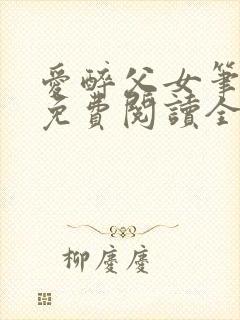 愛醉父女筆
免費閱讀全
柳慶慶